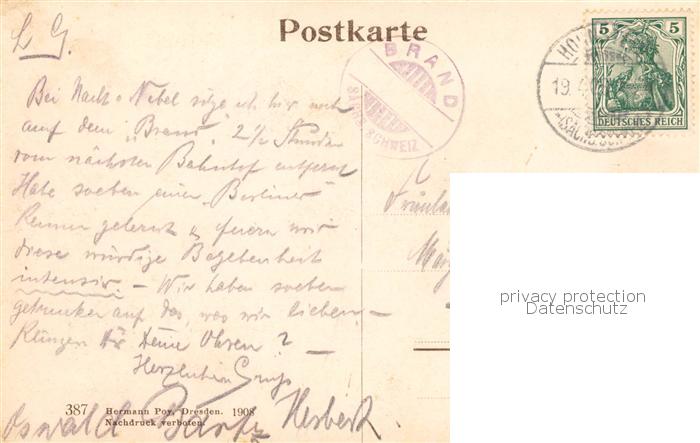 L. G.
Postkarte
BRAND
SÄCHS. SCHWEIZ
5 5
DEUTSCHES REICH
19.4.
(SÄCHS. SCHW
Bei Nacht u Nebel sitze ich hier noch
auf dem "Brand" 2½ Stunden
vom nächsten Bahnhof entfernt
Habe soeben einen "Berliner"
kennen gelernt u feiern wir
diese würdige Begebenheit
intensiv – Wir haben soeben
getrunken auf das, was wir lieben –
Klingen Dir Deine Ohren? –
Herzlichen Gruß
Oswald Herbert.
387 Hermann Poy, Dresden. 1908
Nachdruck verboten.
privacy protection
Datenschutz